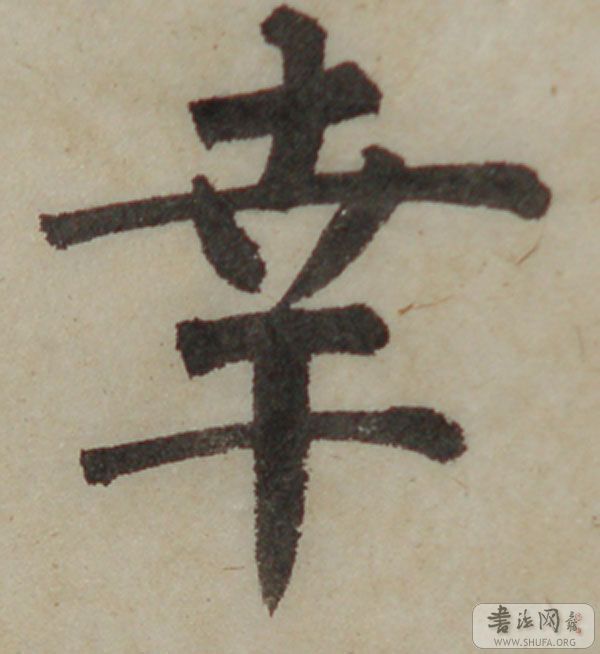 幸
书法网
WWW.SHUFA.ORG